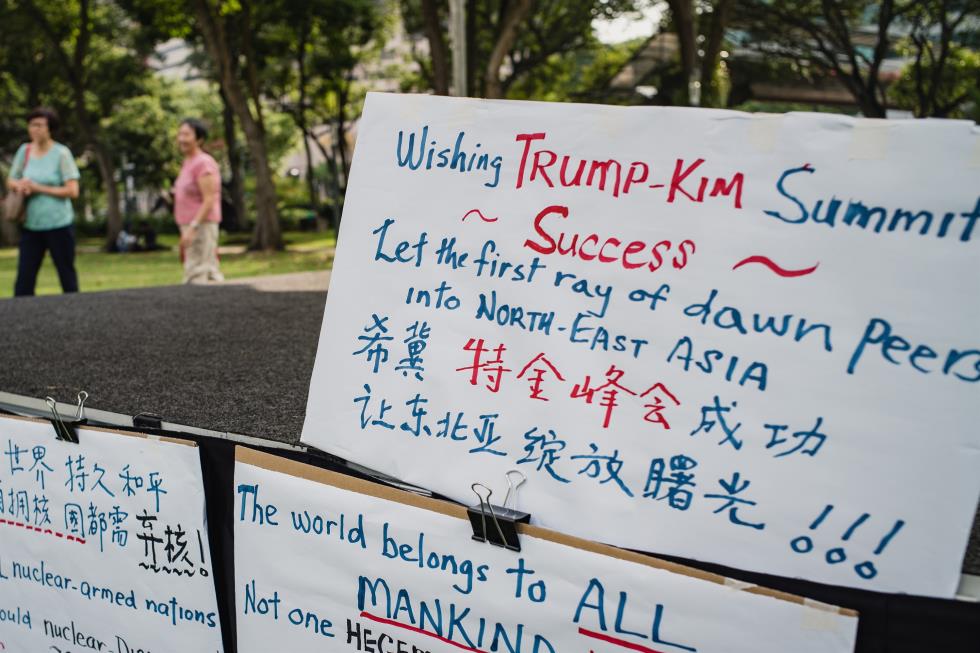 Wishing TRUMP-KIM Summit
~ Success ~
Let the first ray of dawn Peers
into NORTH-EAST ASIA
希冀 特金峰会 成功
让东北亚 绽放曙光!!!
世界 持久和平
拥核 国都需 弃核!
nuclear-armed nations
nuclear-
The world belongs to ALL
MANKIND
Not one